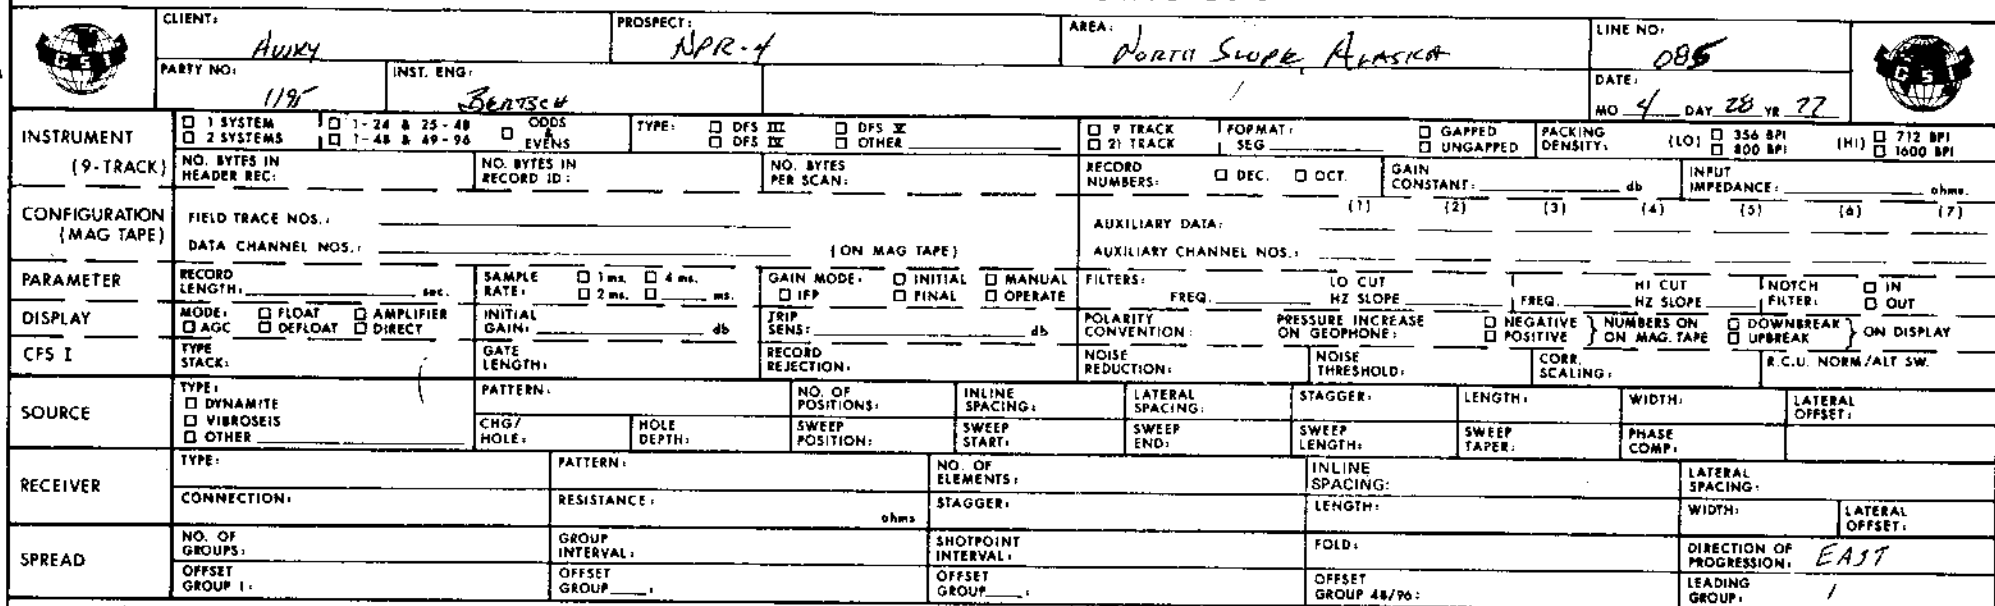 CLIENT: PROSPECT: NPR-4 AREA: NORTH SLOPE ALASKA LINE NO: 085
GSI GSI
PARTY NO: 1195 INST. ENG: BERTSCH DATE: MO 4 DAY 28 YR 77
INSTRUMENT (9-TRACK)
□ 1 SYSTEM □ 1-24 & 25-48 □ ODDS & EVENS TYPE: □ DFS III □ DFS V □ 9 TRACK FORMAT: □ GAPPED PACKING DENSITY: (LO) □ 356 BPI (HI) □ 712 BPI
□ 2 SYSTEMS □ 1-48 & 49-96 □ DFS IV □ OTHER □ 21 TRACK SEG □ UNGAPPED □ 800 BPI □ 1600 BPI
NO. BYTES IN HEADER REC: NO. BYTES IN RECORD ID: NO. BYTES PER SCAN: RECORD NUMBERS: □ DEC. □ OCT. GAIN CONSTANT: db INPUT IMPEDANCE: ohms.
CONFIGURATION (MAG TAPE)
FIELD TRACE NOS.: AUXILIARY DATA: (1) (2) (3) (4) (5) (6) (7)
DATA CHANNEL NOS.: (ON MAG TAPE) AUXILIARY CHANNEL NOS.:
PARAMETER RECORD LENGTH: sec. SAMPLE RATE: □ 1 ms. □ 4 ms. □ 2 ms. □ ms. GAIN MODE: □ INITIAL □ MANUAL □ IFP □ FINAL □ OPERATE FILTERS: LO CUT FREQ. HZ SLOPE HI CUT FREQ. HZ SLOPE NOTCH FILTER: □ IN □ OUT
DISPLAY MODE: □ FLOAT □ AMPLIFIER □ AGC □ DEFLOAT □ DIRECT INITIAL GAIN: db TRIP SENS: db POLARITY CONVENTION: PRESSURE INCREASE ON GEOPHONE: □ NEGATIVE □ POSITIVE } NUMBERS ON MAG. TAPE □ DOWNBREAK □ UPBREAK } ON DISPLAY
CFS I TYPE STACK: GATE LENGTH: RECORD REJECTION: NOISE REDUCTION: NOISE THRESHOLD: CORR. SCALING: R.C.U. NORM/ALT SW.
SOURCE TYPE: □ DYNAMITE □ VIBROSEIS □ OTHER
PATTERN: NO. OF POSITIONS: INLINE SPACING: LATERAL SPACING: STAGGER: LENGTH: WIDTH: LATERAL OFFSET:
CHG/HOLE: HOLE DEPTH: SWEEP POSITION: SWEEP START: SWEEP END: SWEEP LENGTH: SWEEP TAPER: PHASE COMP:
RECEIVER TYPE: PATTERN: NO. OF ELEMENTS: INLINE SPACING: LATERAL SPACING:
CONNECTION: RESISTANCE: ohms STAGGER: LENGTH: WIDTH: LATERAL OFFSET:
SPREAD NO. OF GROUPS: GROUP INTERVAL: SHOTPOINT INTERVAL: FOLD: DIRECTION OF PROGRESSION: EAST
OFFSET GROUP 1: OFFSET GROUP : OFFSET GROUP : OFFSET GROUP 48/96: LEADING GROUP: 1